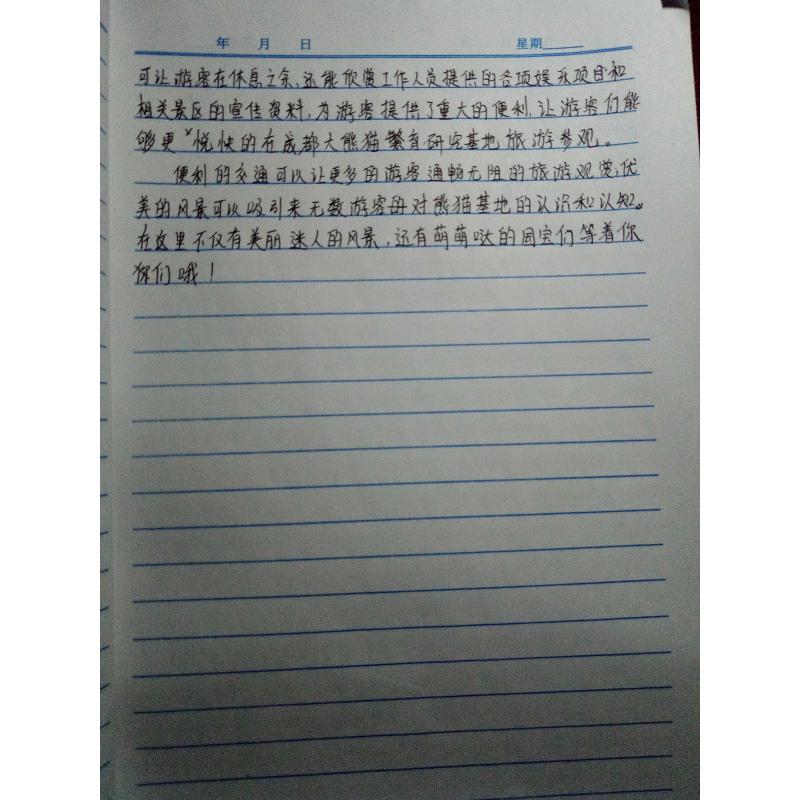 年 月 日 星期
可让游客在休息之余,还能欣赏工作人员提供的各项娱乐项目和
相关景区的宣传资料,为游客提供了重大的便利,让游客们能
够更悦快的在成都大熊猫繁育研究基地旅游参观。
便利的交通可以让更多的游客通畅无阻的旅游观赏,优
美的风景可以吸引来无数游客每对熊猫基地的认识和认知。
在这里不仅有美丽迷人的风景,还有萌萌哒的国宝们等着你
你们哦!